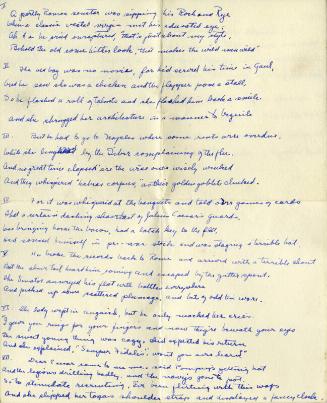 I
A portly Roman senator was sipping his Rock and Rye
When a classic vestal virgin met his educated eye,
"Ah," he cried enraptured, "that is just about my style,
Behold the old come hither look, that makes the wild men wild"
II The old boy was no novice, for he'd served his time in Gaul,
And he saw she was a chicken and the flapper
So he flashed a roll of talents and she flashed him back a smile.
And she shrugged her architecture in a manner to beguile
III But he had to go to Naples where some rents were overdue.
While she by the Tiber complaining of the flu.
And no great time elapsed ere the wise ones wisely winked
And they whispered "habeas corpus," as their golden goblets clinked.
IV For it was whispered at the banquets and told over games of cards
That a certain dashing of Julius Caesar's guards,
Was bringing home the bacon, had a latch key to the flat,
And soused himself in pre-war stock and was staging a terrible bat.
V He broke the records back to Rome and arrived with a terrible shout
But the heard him coming and escaped by the gutter spout.
The Senator surveyed his flat with bottles everywhere
And picked up some scattered plumage, and bits of
VI The lady wept in anguish, but he only mocked her cries.
"I gave you rings for your fingers and now they're beneath your eyes
The sweet young thing was cagy, she'd expected his return
And she explained, "Semper Fidelis, won't you ere learn?"
VII Dear I was to me, said Pompey's getting hot
And the legions drilling badly, and the navy's gone to pot.
So to stimulate recruiting, I've been flirting with the wops
And she slipped her toga's shoulder strap and